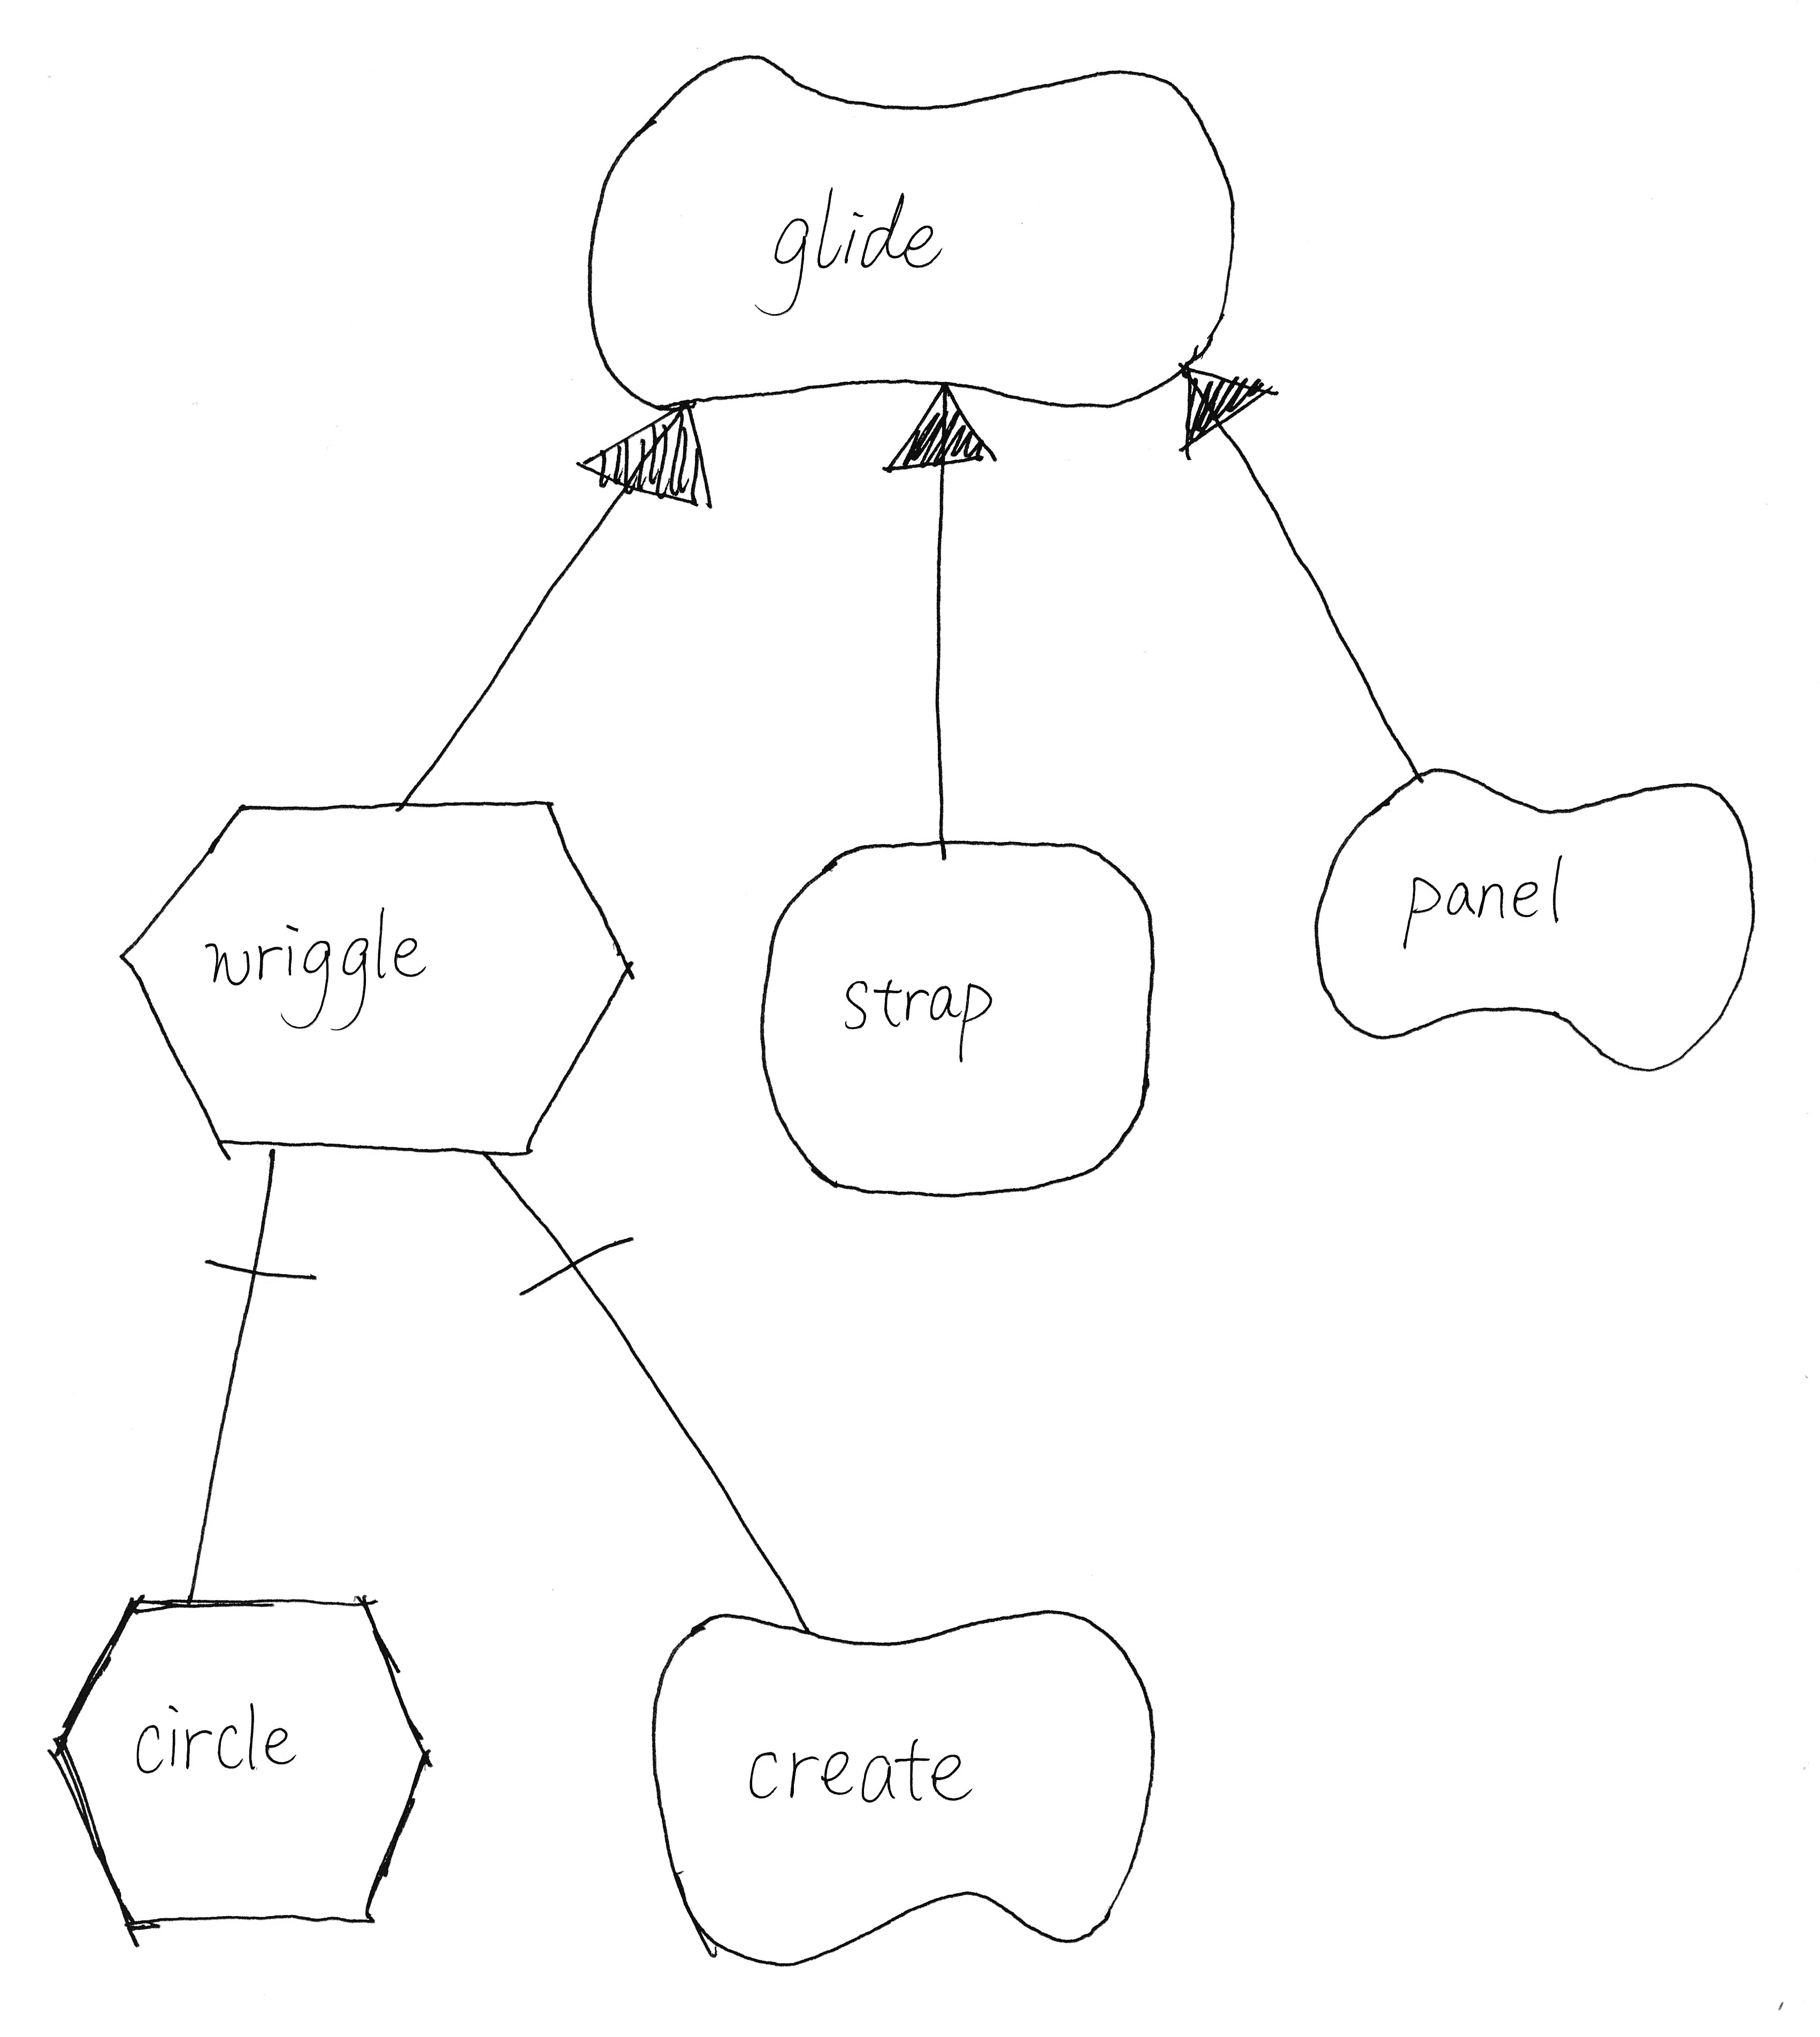 glide
wriggle
strap
panel
circle
create